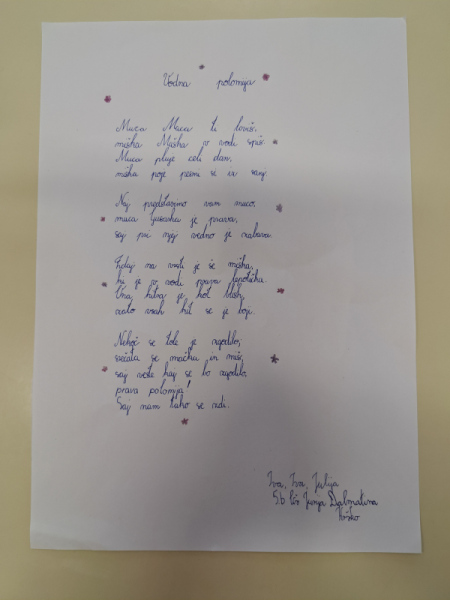 Vodna polomija
Muca Maca te lovi,
miška Miška v vodi spi.
Muca pluje celi dan,
miška poje pesmi si in sanj.
Naj predstavimo vam muco,
muca ljubezniva je prava,
saj pri njej vedno je zabava.
Zdaj na vrsti je še miška,
ki je v vodi prava lepotička.
Ona hitra je kot blisk,
zato vsak hit se je boji.
Nekoč se tole je zgodilo,
srečata se mačka in miš,
saj veste kaj se bo zgodilo,
prava polomija!
Saj nam tako se zdi.
Iva, Iva, Julija
5.b OŠ Jurija Dalmatina
Krško